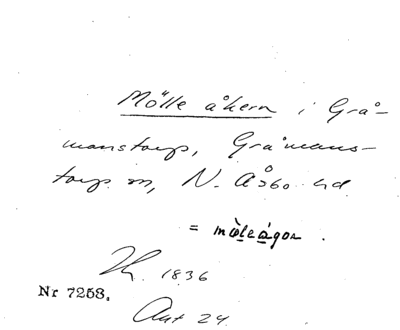 Mölle åkern i Grå-
manstorp, Gråmans-
torp sn, N. Åsbo hd.
= mølẹågọn.
1836
Nr 7253.
Akt 24